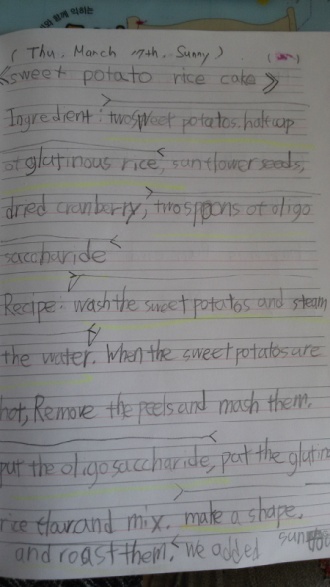 ( Thu. March 17th. Sunny )
<sweet potato rice cake>
Ingredient: two sweet potatos, half cup
of glutinous rice, sunflower seeds,
dried cranberry, two spoons of oligo
saccharide
Recipe: wash the sweet potatos and steam
the water. When the sweet potatos are
hot, Remove the peels and mash them.
put the oligosaccharide, put the glutin
rice flour and mix. make a shape.
and roast them. we added